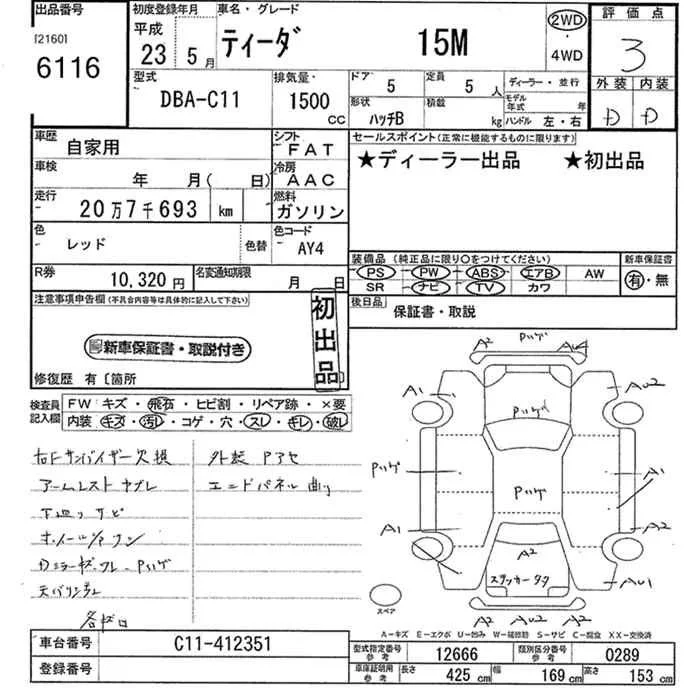 出品番号 初度登録年月 車名・グレード 評価点
121601
6116
平成
23 5月 ティーダ 15M 2WD
4WD
3
外装 内装
D D
型式 排気量 ドア 5 定員 5人 ディーラー・並行
DBA-C11 1500 cc 形状 ハッチB 積載 kg モデル年式 年
ハンドル 左・右
車歴 自家用 シフト FAT セールスポイント(正常に機能するものに限ります)
車検 年 月( 日) 冷房 AAC ★ディーラー出品 ★初出品
走行 20万7千693 km 燃料 ガソリン
色 レッド 色替 色コード AY4
装備品(純正品に限り○をつけてください) 新車保証書
PS PW ABS エアB AW 有・無
SR ナビ TV カワ
R券 10,320円 名変通知期限 月 日
後日品 保証書・取説
注意事項申告欄(不具合内容等は具体的に記入して下さい)
新車保証書・取説付き
初出品
修復歴 有〔箇所
検査員記入欄 FW キズ・飛石・ヒビ割・リペア跡・×要
内装 キズ・汚レ・コゲ・穴・スレ・キレ・破レ
右Fサンバイザー欠損 外装Pアセ
アームレストヤブレ エンドパネル曲り
下廻りサビ
各ボロ
A2 AU4
A1 AU2
Pハゲ
Pハゲ
A1
A1
A2
A2
ステッカータタ
AU1
A2 AU2 A2
スペア
A-キズ E-エクボ U-凹み W-補修跡 S-サビ C-腐食 XX-交換済
車台番号 C11-412351
登録番号
型式指定番号 参考 12666 類別区分番号 参考 0289
車庫証明用 参考 長さ 425 cm 幅 169 cm 高さ 153 cm